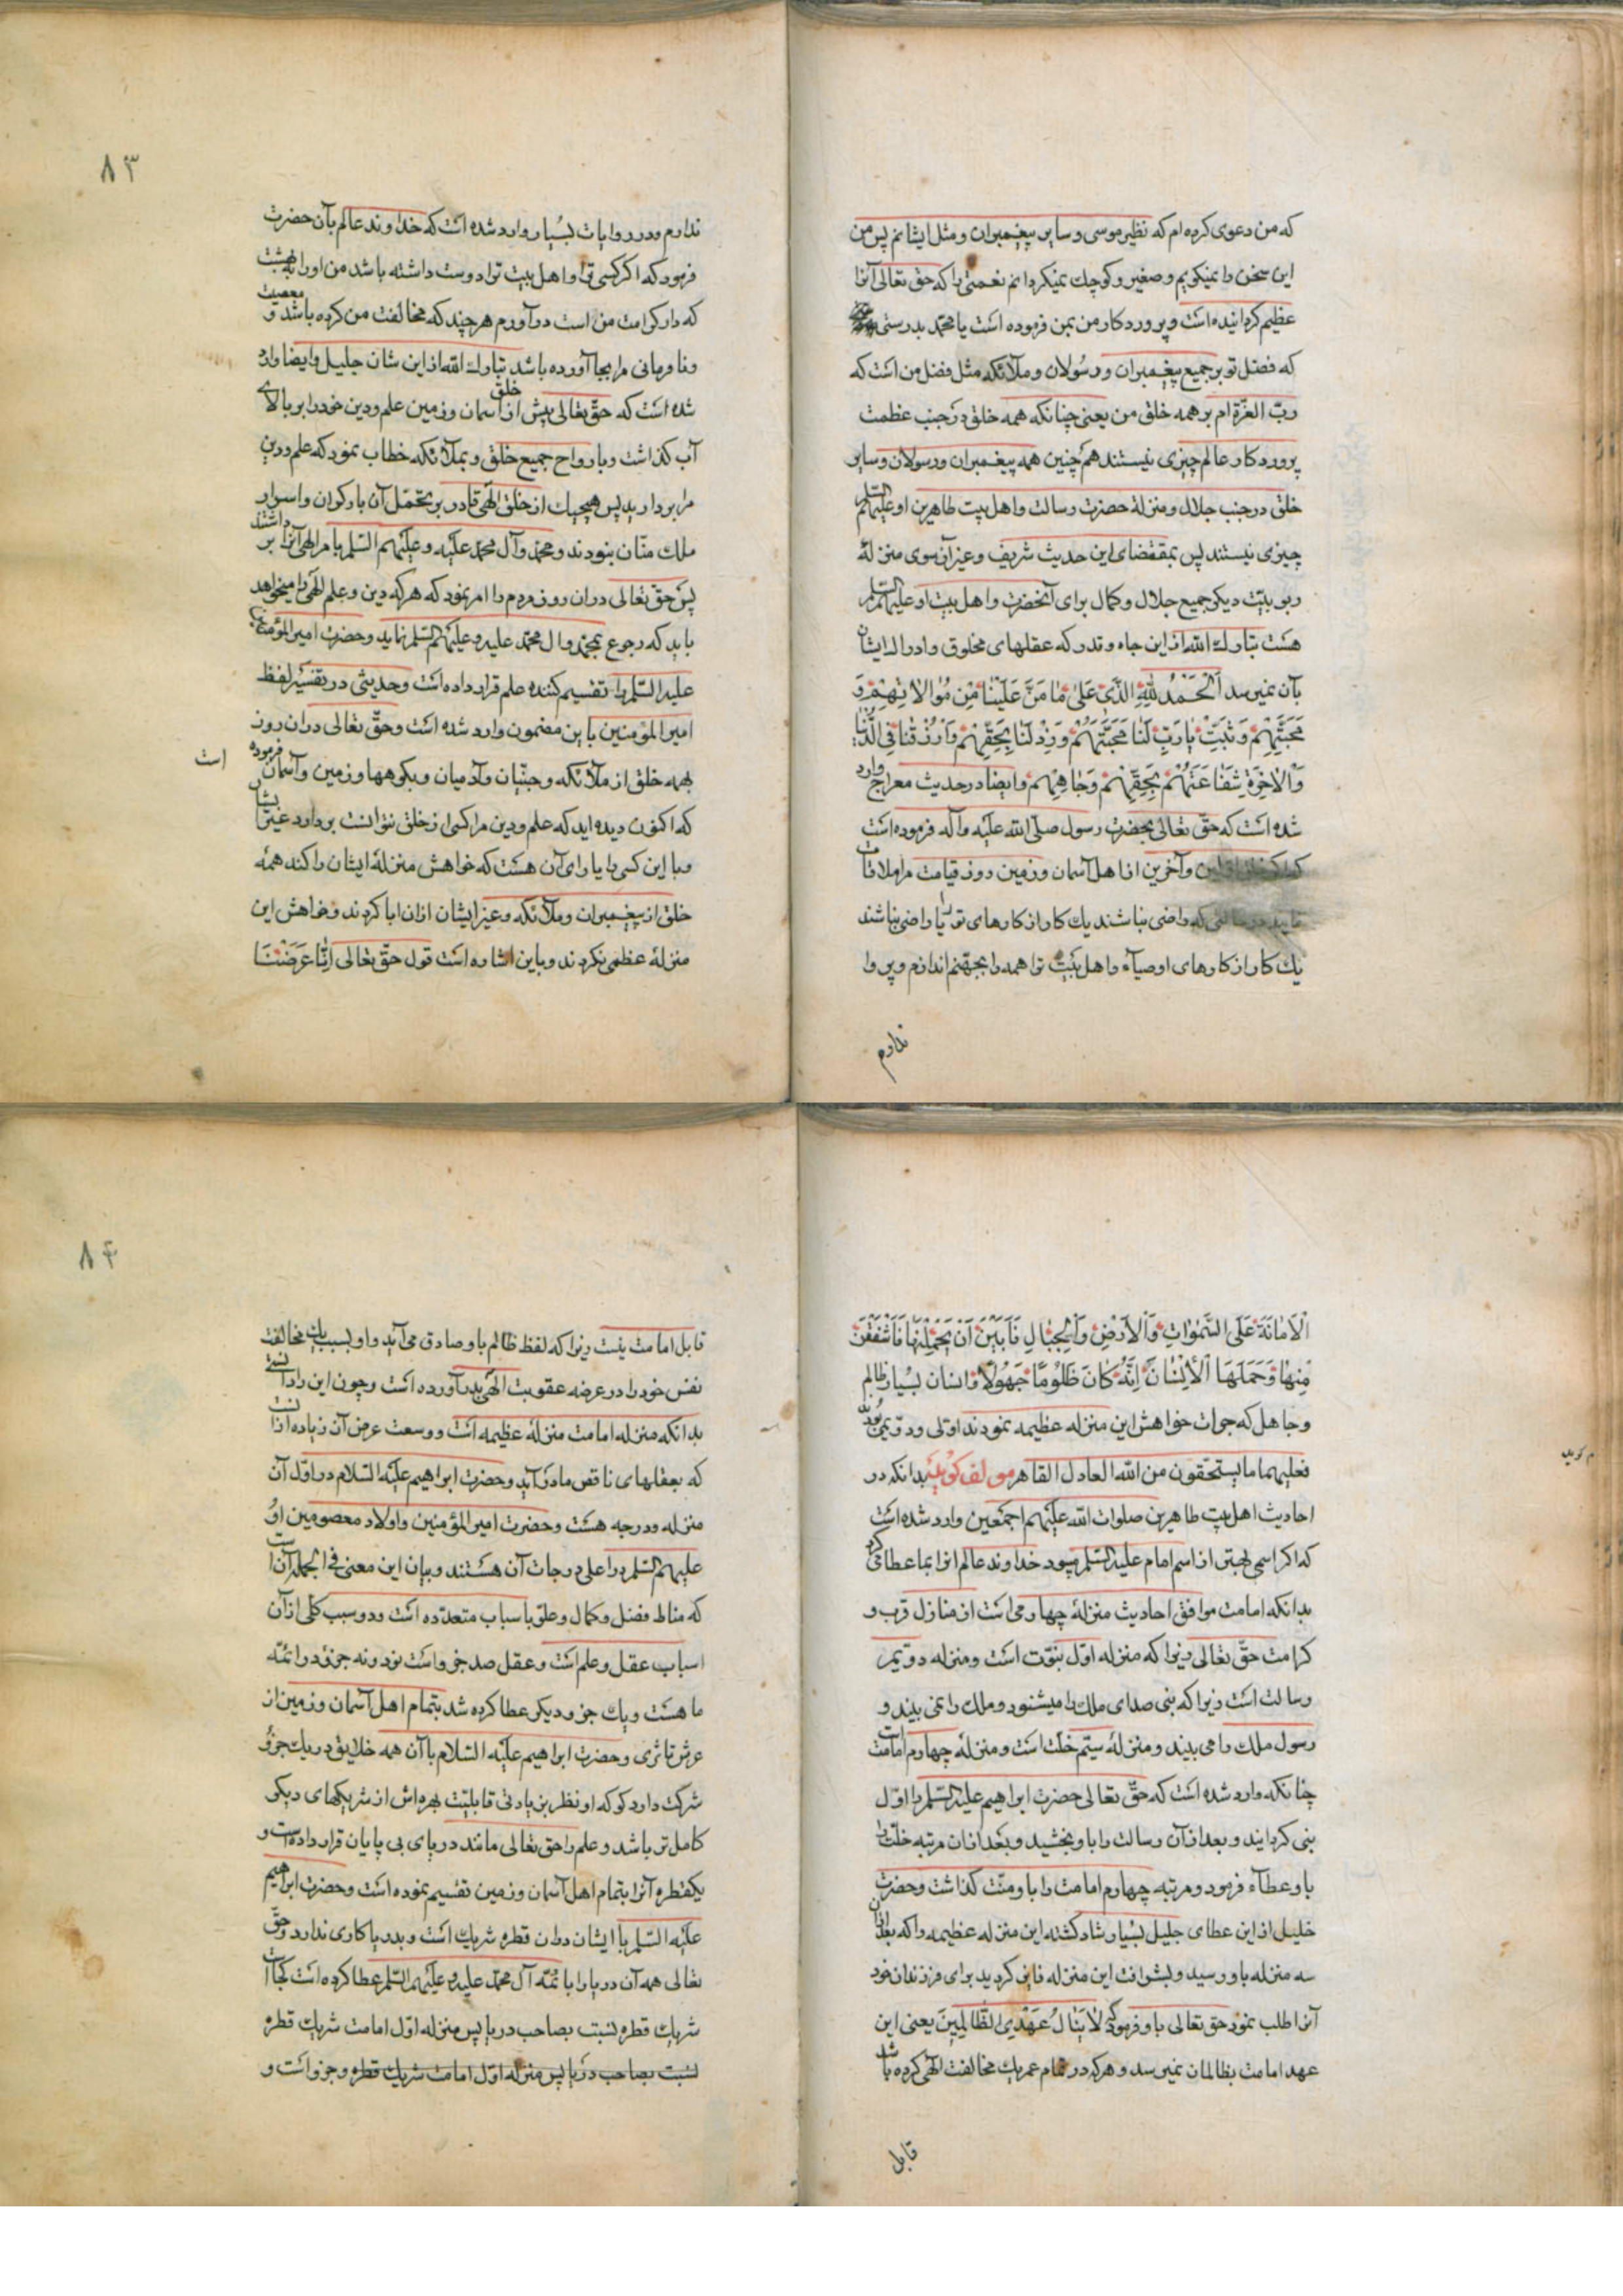 که من دعوی کرده ام که نظیر موسی و سایر پیغمبران و مثل ایشانم پس من
این سخن را نمیکویم و صغیر و کوچک نمیکردانم نعمتی را که حق تعالی آنرا
عظیم کردانیده است و پروردکار من بمن فرموده است یا محمد بدرستی
که فضل تو بر جمیع پیغمبران و رسولان و ملائکه مثل فضل من است که
ربّ العزّة ام بر همه خلق من یعنی چنانکه همه خلق در جنب عظمت
پروردکار عالم چیزی نیستند همچنین همه پیغمبران و رسولان و سایر
خلق در جنب جلال و منزلة حضرت رسالت و اهل بیت طاهرین او علیهم السّلم
چیزی نیستند پس بمقتضای این حدیث شریف و غیر آن سوی منزلهٔ
ربوبیّت دیکر جمیع جلال و کمال برای آنحضرت و اهل بیت او علیهم السّلم
هست تبارک الله از این جاه و قدر که عقلهای مخلوق و ادراک ایشان
بآن نمیرسد اَلْحَمْدُ لِلّٰهِ الَّذی عَلیٰ مٰا مَنَّ عَلَیْنٰا مِن مُوٰالاٰتِهِمْ وَ
مَحَبَّتِهِمْ وَثَبِّتْ یٰا رَبِّ لَنٰا مَحَبَّتَهُمْ وَزِدْ لَنٰا بِحَقِّهِمْ وَارْزُقْنٰا فِی الدُّنْیٰا
وَالْاٰخِرَةِ شَفٰاعَتَهُمْ بِحَقِّهِمْ وَجٰاهِهِمْ و ایضا در حدیث معراج وارد
شده است که حقّ تعالی بحضرت رسول صلّی الله علیه و آله فرموده است
و آخرین از اهل آسمان و زمین روز قیامت مرا ملاقات
که راضی نباشند یک کار از کارهای تو یا راضی نباشند
یک کار از کارهای اوصیآء و اهل بیت تو همه را بجهنم اندازم و پروا
ندارم
۸۳
ندارم و در روایات بسیار وارد شده است که خداوند عالم بآن حضرت
فرمود که اکر کسی تو و اهل بیت تو را دوست داشته باشد من او را بهشت
که دار کرامت من است در آورم هر چند که مخالفت من کرده باشد و معصیت
و نا فرمانی مرا بجا آورده باشد تبارک الله از این شان جلیل و ایضا وارد
شده است که حقّ تعالی پیش از خلق آسمان و زمین علم و دین خود را بر بالای
آب کذاشت و بارواح جمیع خلق و بملائکه خطاب نمود که علم و دین
مرا بردارید پس هیچیک از خلق الهی قادر بر تحمّل آن بار کران و اسرار
ملک منّان نبودند و محمد و آل محمد علیه و علیهم السّلم بامر الهی آنرا بر داشتند
پس حق تعالی در آن روز مردم را امر نمود که هر که دین و علم الهی را میخواهد
باید که رجوع بمحمد و ال محمد علیه و علیهم السّلم نماید و حضرت امیر المؤمنین
علیه السّلم را تقسیم کننده علم قرار داده است و حدیثی در تفسیر لفظ
امیر المؤمنین باین مضمون وارد شده است و حقّ تعالی در آن روز
بهمه خلق از ملائکه و جنّیان و آدمیان و بکوهها و زمین و آسمان فرموده
است
که اکنون دیده اید که علم و دین مرا کسی از خلق نتوانست بردارد غیر ایشان
و با این کسی را یارای آن هست که خواهش منزلهٔ ایشان را کند همهٔ
خلق از پیغمبران و ملائکه و غیر ایشان از آن ابا کردند و خواهش این
منزلهٔ عظمی نکردند و باین اشاره است قول حقّ تعالی اِنّٰا عَرَضْنَا
الْاَمٰانَةَ عَلَی السَّمٰوٰاتِ وَالْاَرْضِ وَالْجِبٰالِ فَاَبَیْنَ اَنْ یَحْمِلْنَهٰا فَاَشْفَقْنَ
مِنْهٰا وَحَمَلَهَا الْاِنْسٰانُ اِنَّهُ کٰانَ ظَلُومًا جَهُولًا و انسان بسیار ظالم
و جاهل که جرات خواهش این منزله عظیمه نمودند اوّلی و دوّیمی بودند
فعلیهما ما یستحقون من الله العادل القاهر مولف کوید بدانکه در
م کوید
احادیث اهل بیت طاهرین صلوات الله علیهم اجمعین وارد شده است
که اکر اسمی بهتر از اسم امام علیه السّلم میبود خداوند عالم انرا بما عطا می کرد
بدانکه امامت موافق احادیث منزلهٔ چهارمی است از منازل قرب و
کرامت حقّ تعالی زیرا که منزله اوّل نبوّت است و منزله دویّم
رسالت است زیرا که نبی صدای ملک را میشنود و ملک را نمی بیند و
رسول ملک را می بیند و منزلهٔ سیّم خلّت است و منزلهٔ چهارم امامت است
چنانکه وارد شده است که حقّ تعالی حضرت ابراهیم علیه السّلم را اوّل
نبی کردانید و بعد از آن رسالت را باو بخشید و بعد از ان مرتبه خلّت را
باو عطآء فرمود و مرتبه چهارم امامت را باو منّت کذاشت و حضرت
خلیل از این عطای جلیل بسیار شاد کشته این منزله عظیمه را که بعد از آن
سه منزله باو رسید و بشرافت این منزله فایز کردید برای فرزندان خود
آنرا طلب نمود حق تعالی باو فرمود که لاٰ یَنٰالُ عَهْدِی الظّٰالِمِینَ یعنی این
عهد امامت بظالمان نمیرسد و هر که در تمام عمر یک مخالفت الهی کرده باشد
قابل
۸۴
قابل امامت نیست زیرا که لفظ ظالم باو صادق می آید و او بسبب یک مخالفت
نفس خود را در عرضه عقوبت الهی در آورده است و چون این را دانستی
بدانکه منزله امامت منزلهٔ عظیمه است و وسعت عرض آن زیاده از آنست
که بعقلهای ناقص ما در آید و حضرت ابراهیم علیه السّلام در اوّل آن
منزله و درجه هست و حضرت امیر المؤمنین و اولاد معصومین او
علیهم السّلم در اعلی درجات آن هستند و بیان این معنی فی الجمله آنست
که مناط فضل و کمال و علوّ باسباب متعدّده است و دو سبب کلی از آن
اسباب عقل و علم است و عقل صد جزو است نود و نه جزو در ائمّه
ما هست و یک جزو دیکر عطا کرده شد بتمام اهل آسمان و زمین از
عرش تا ثری و حضرت ابراهیم علیه السّلام با آن همه خلایق در یک جزو
شرکت دارد کو که او نظر بزیادتی قابلیّت بهره اش از شریکهای دیکر
کامل تر باشد و علم را حق تعالی مانند دریای بی پایان قرار داده است و
یکقطره آنرا بتمام اهل آسمان و زمین تقسیم نموده است و حضرت ابراهیم
علیه السّلم با ایشان در ان قطره شریک است و بدریا کاری ندارد و حقّ
تعالی همه آن دریا را بائمّه آل محمّد علیه و علیهم السّلم عطا کرده است کجا است
شریک قطره نسبت بصاحب دریا پس منزله اوّل امامت شریک قطره
نسبت بصاحب دریا پس منزله اوّل امامت شریک قطره و جزو است و